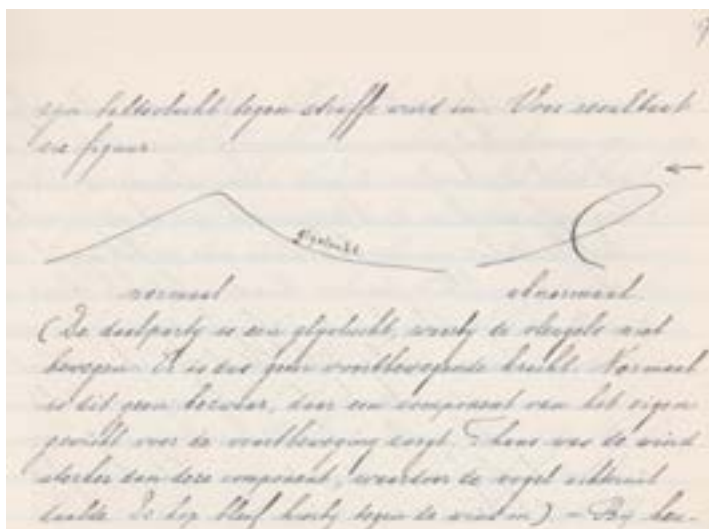 zijn baltsvlucht tegen straffe wind in. Voor resultaat
zie figuur
glijvlucht
normaal abnormaal
(De daalpartij is een glijvlucht, waarbij de vleugels niet
bewegen. Er is dus geen voortbewegende kracht. Normaal
is dit geen bezwaar, daar een component van het eigen
gewicht voor de voortbeweging zorgt. Thans was de wind
sterker dan deze component, waardoor de vogel achteruit
daalde. De kop bleef hierbij tegen de wind in) – Bij